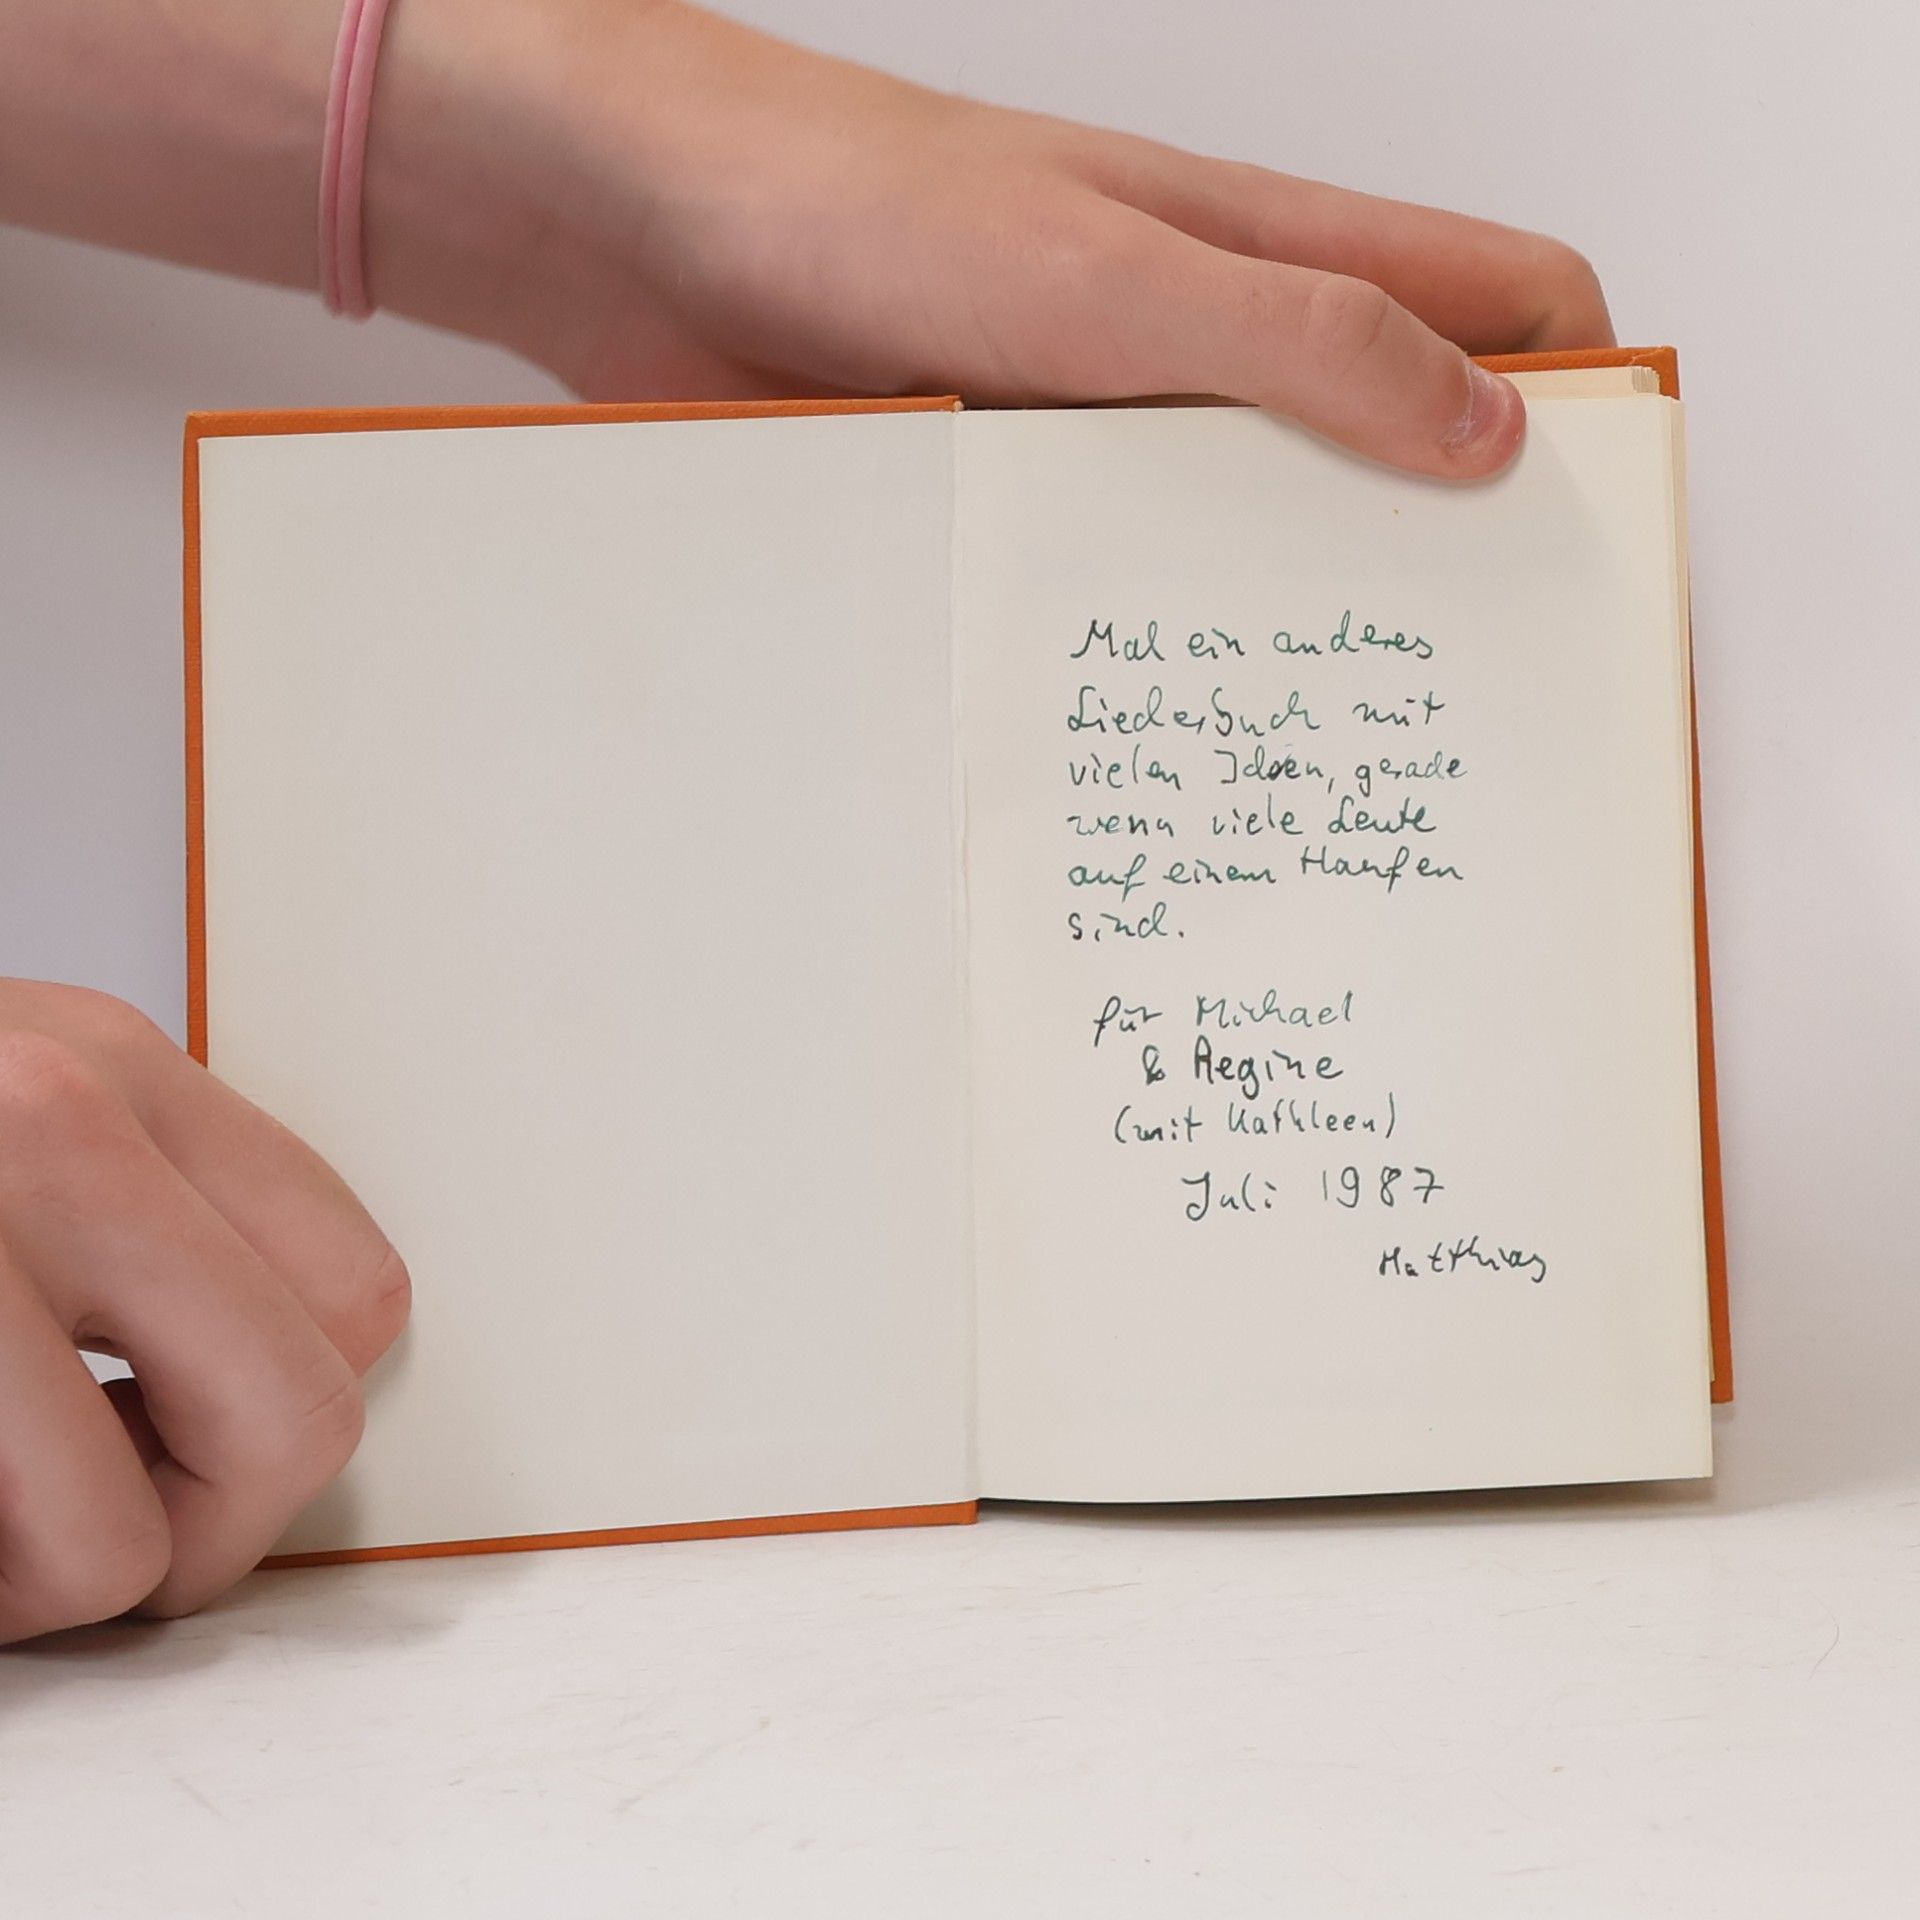 Mal ein anderes
Liederbuch mit
vielen Ideen, gerade
wenn viele Leute
auf einem Haufen
sind.
für Michael
& Regine
(mit Kathleen)
Juli 1987
Matthias